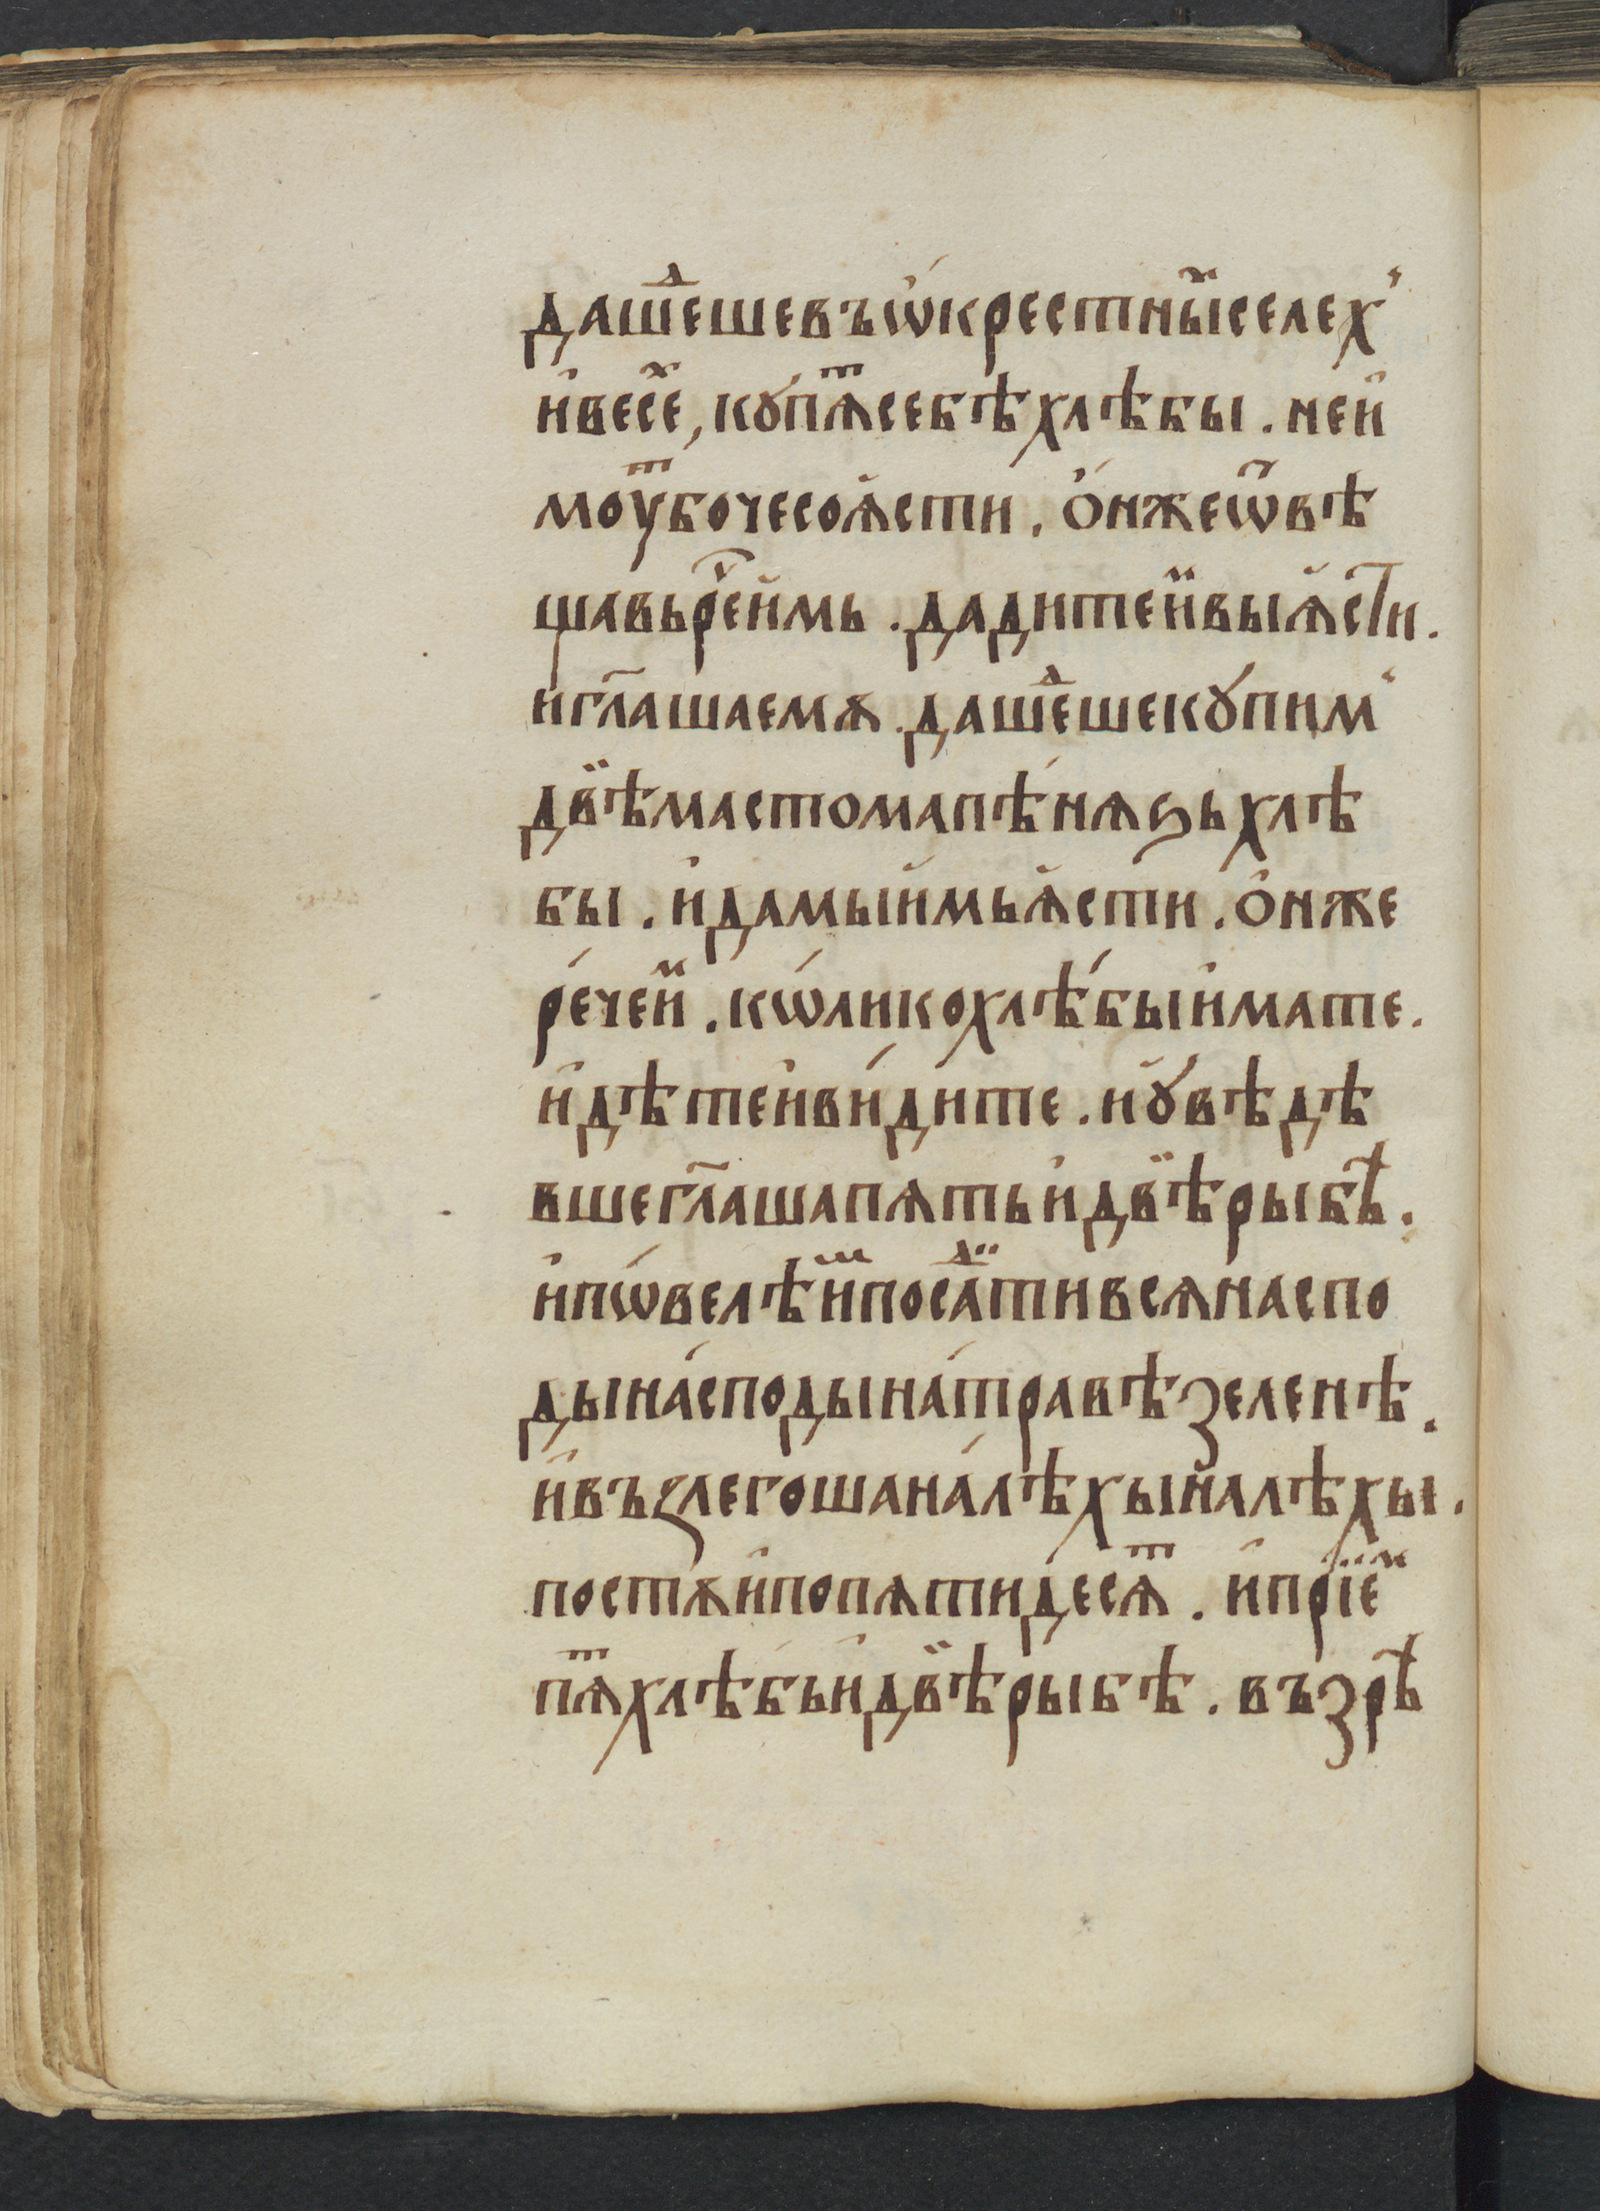 дашеⷣшевъѡ҆крестныⷯселех̾
и҆весеⷯ, кꙋ́пѧⷮсебѣхлѣбы . неи҆
моуⷮбочесоꙗ҆сти . ѻ҆́нжеѿвѣ
щавьрⷱ҇еи҆мь . дадитеи҆̀выꙗ҆сти .
иг҃лашаемѫ . дашеⷣшекꙋпим̾
двѣ̈мастомапѣ́нѧѕьхлѣ
бы . и҆дамыи҆мьꙗ҆сти . ѻ҆нже
ре́чеиⷨ . кѡ́ликохлѣ́быи҆мате .
и҆дѣтеи҆ви́дите . иꙋ҆вѣдѣ
вшег҃лашапѧтьи҆двѣ̈рыбѣ̀ .
и҆пѡ́велѣиⷨпосаⷣ҆тивсѧнаспо
дына́сподына́травѣзеленѣ .
и҆въꙁлегошана́лѣхына́лѣхы .
постѫи҆попѧтидесѧⷮ . и҆прїеⷨ
пѧⷮхлѣбьи҆двѣ̈рыбѣ . възрѣ̀